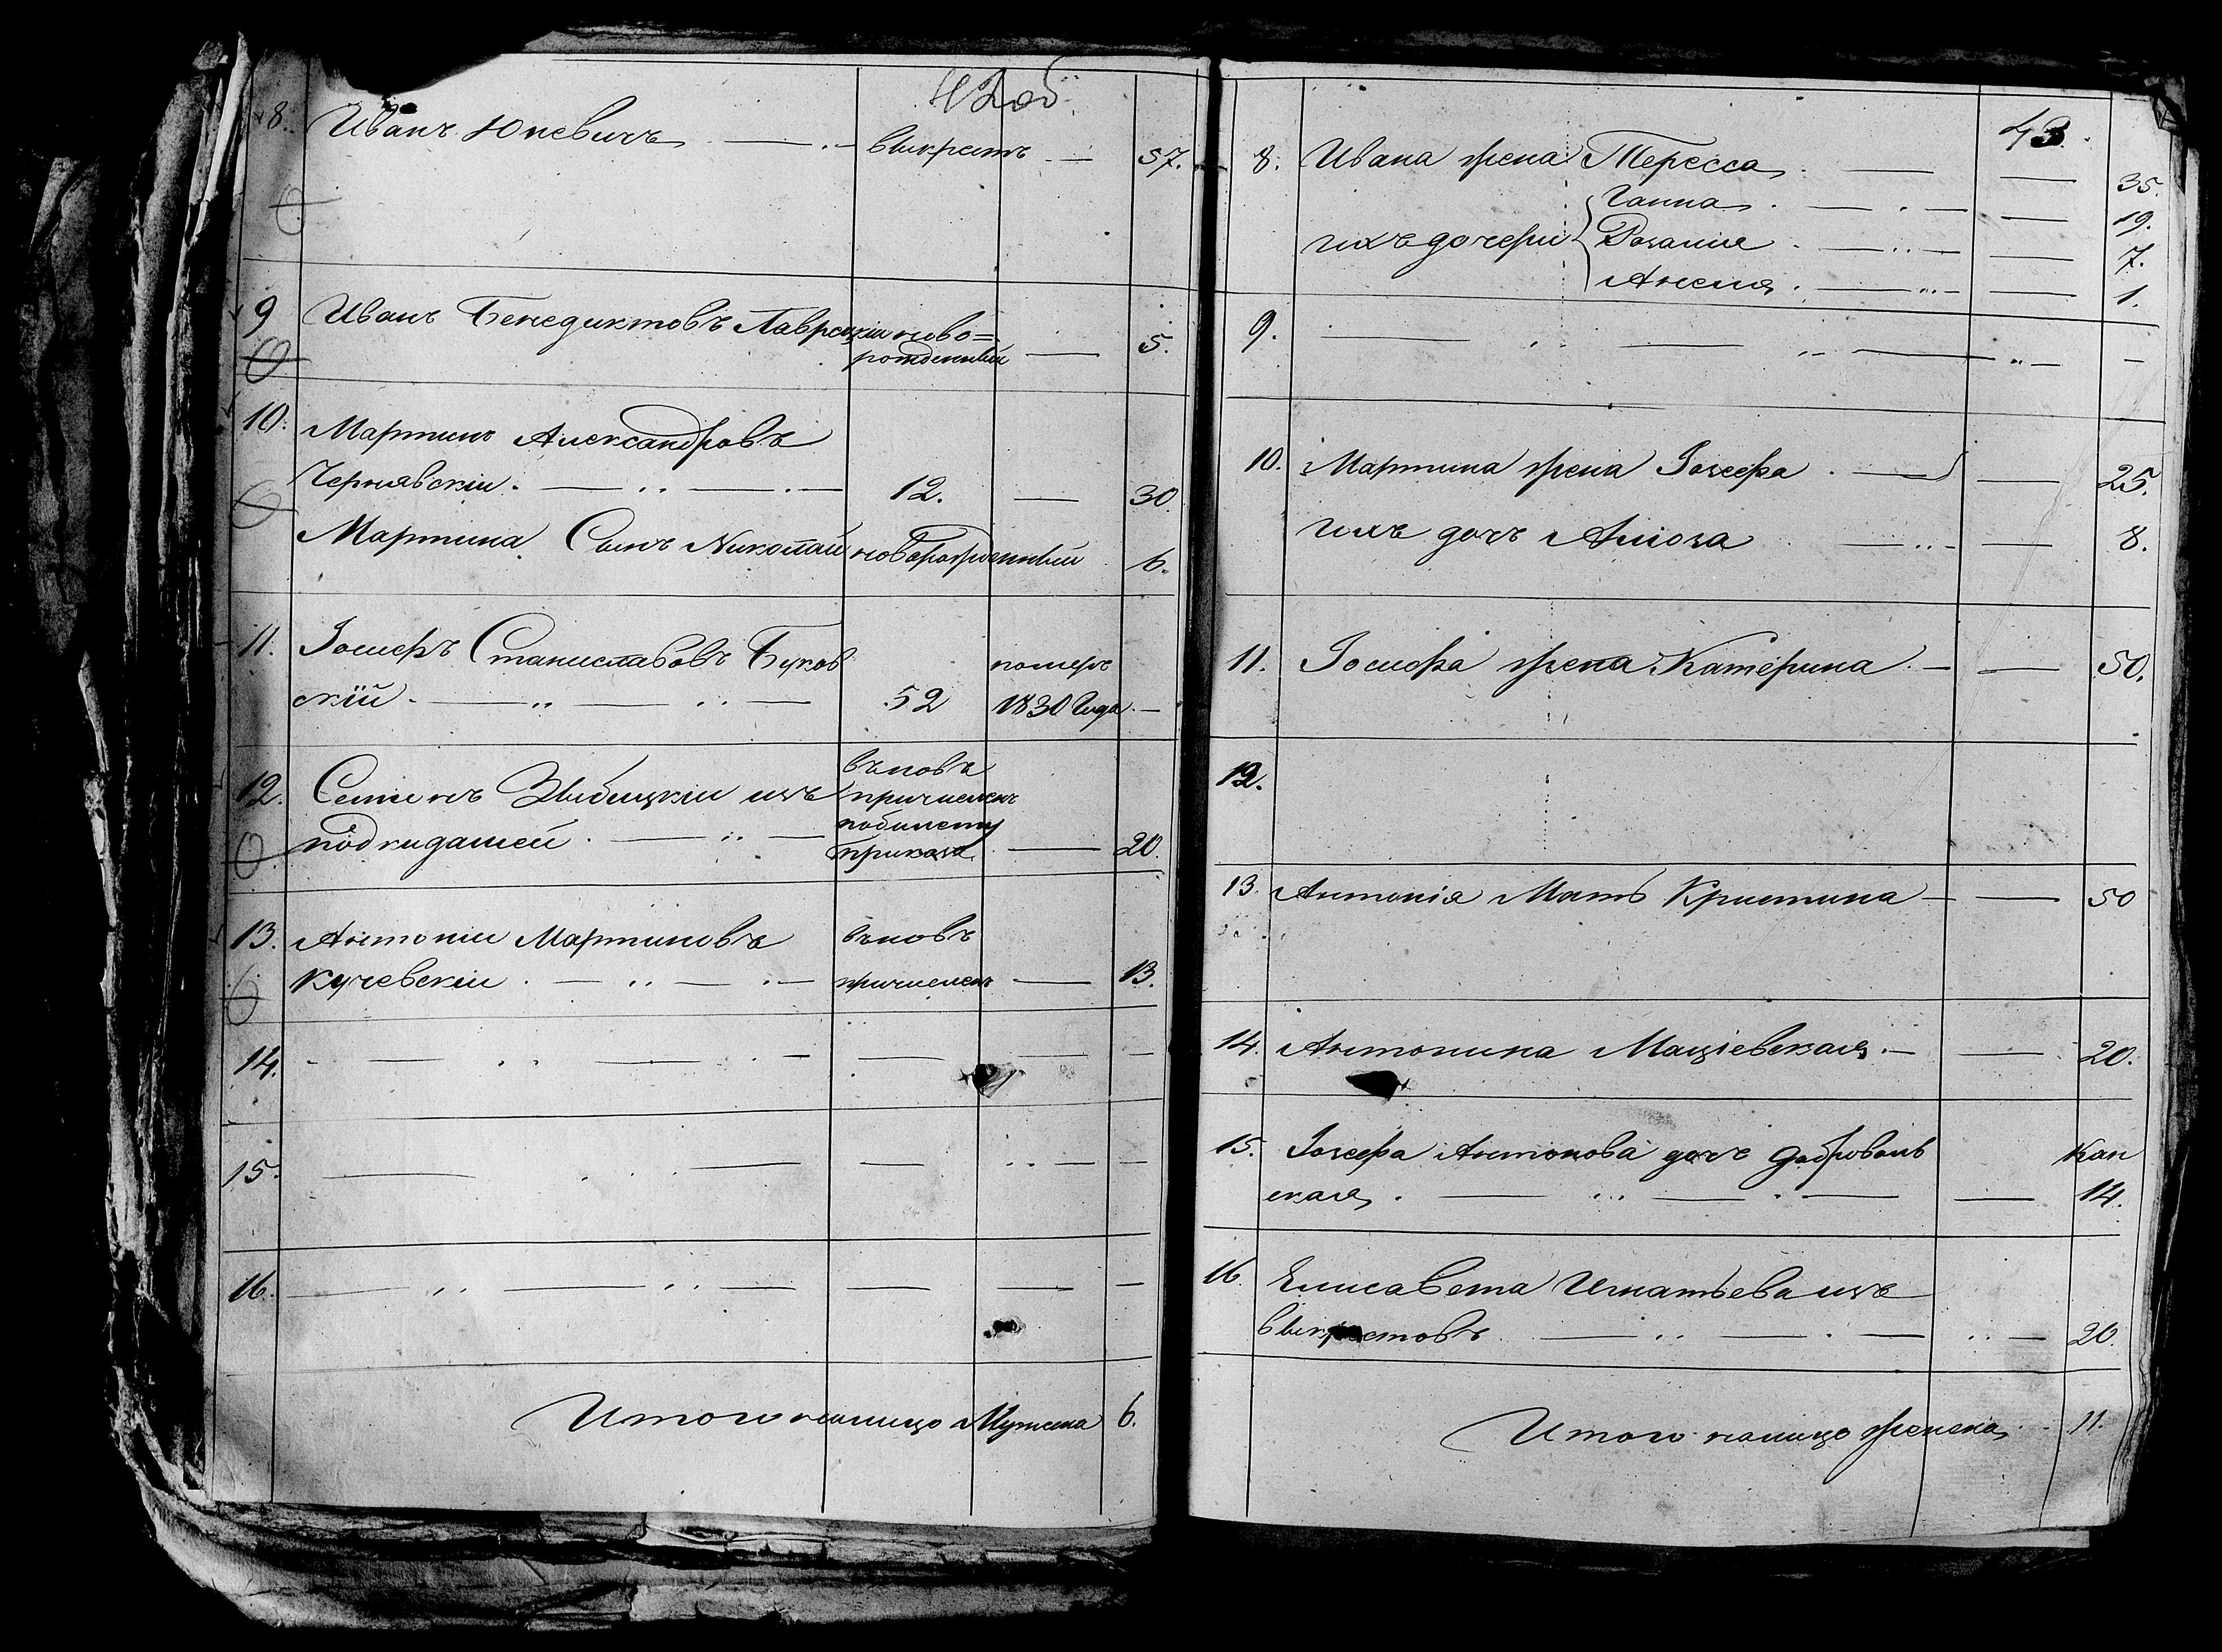 42 об.
8. Иванъ Юневичъ — выкрестъ — 57.
9 Иванъ Бенедиктовъ Лаврецкiй ново=
рожденный — 5.
10. Мартинъ Александровъ
Чернявскiй. — 12. — 30.
Мартина Сынъ Николай новорожденный 6.
11. Iосифъ Станиславовъ Буков
скiй. — 52
померъ
1830 Года. —
12. Семенъ Звибицкiй изъ
подкидашей. —
вновъ
причисленъ
побилету
приказа. — 20.
13. Антонiй Мартиновъ
Кучевскiй. —
вновъ
причисленъ — 13.
14. — — — —
15. — — — —
16. — — — —
Итого налицо Мужеска 6.
43.
8. Ивана жена Тересса. — — 35.
Ганна. — — 19.
ихъ дочери Розалiя — — 7.
Анеля. — — 1.
9. — — — —
10. Мартина жена Iозефа. — — 25.
ихъ дочъ Анюза — — 8.
11. Iосифа жена Катерина. — — 50.
12.
13. Антонiя Мать Кристина — — 50
14. Антонина Мацiевская. — — 20.
15. Iозефа Антонова дочъ Добровольс
кая. — — 14.
16. Елисавета Игнатьева изъ
выкрестовъ. — — 20.
Итого налицо женска. 11.